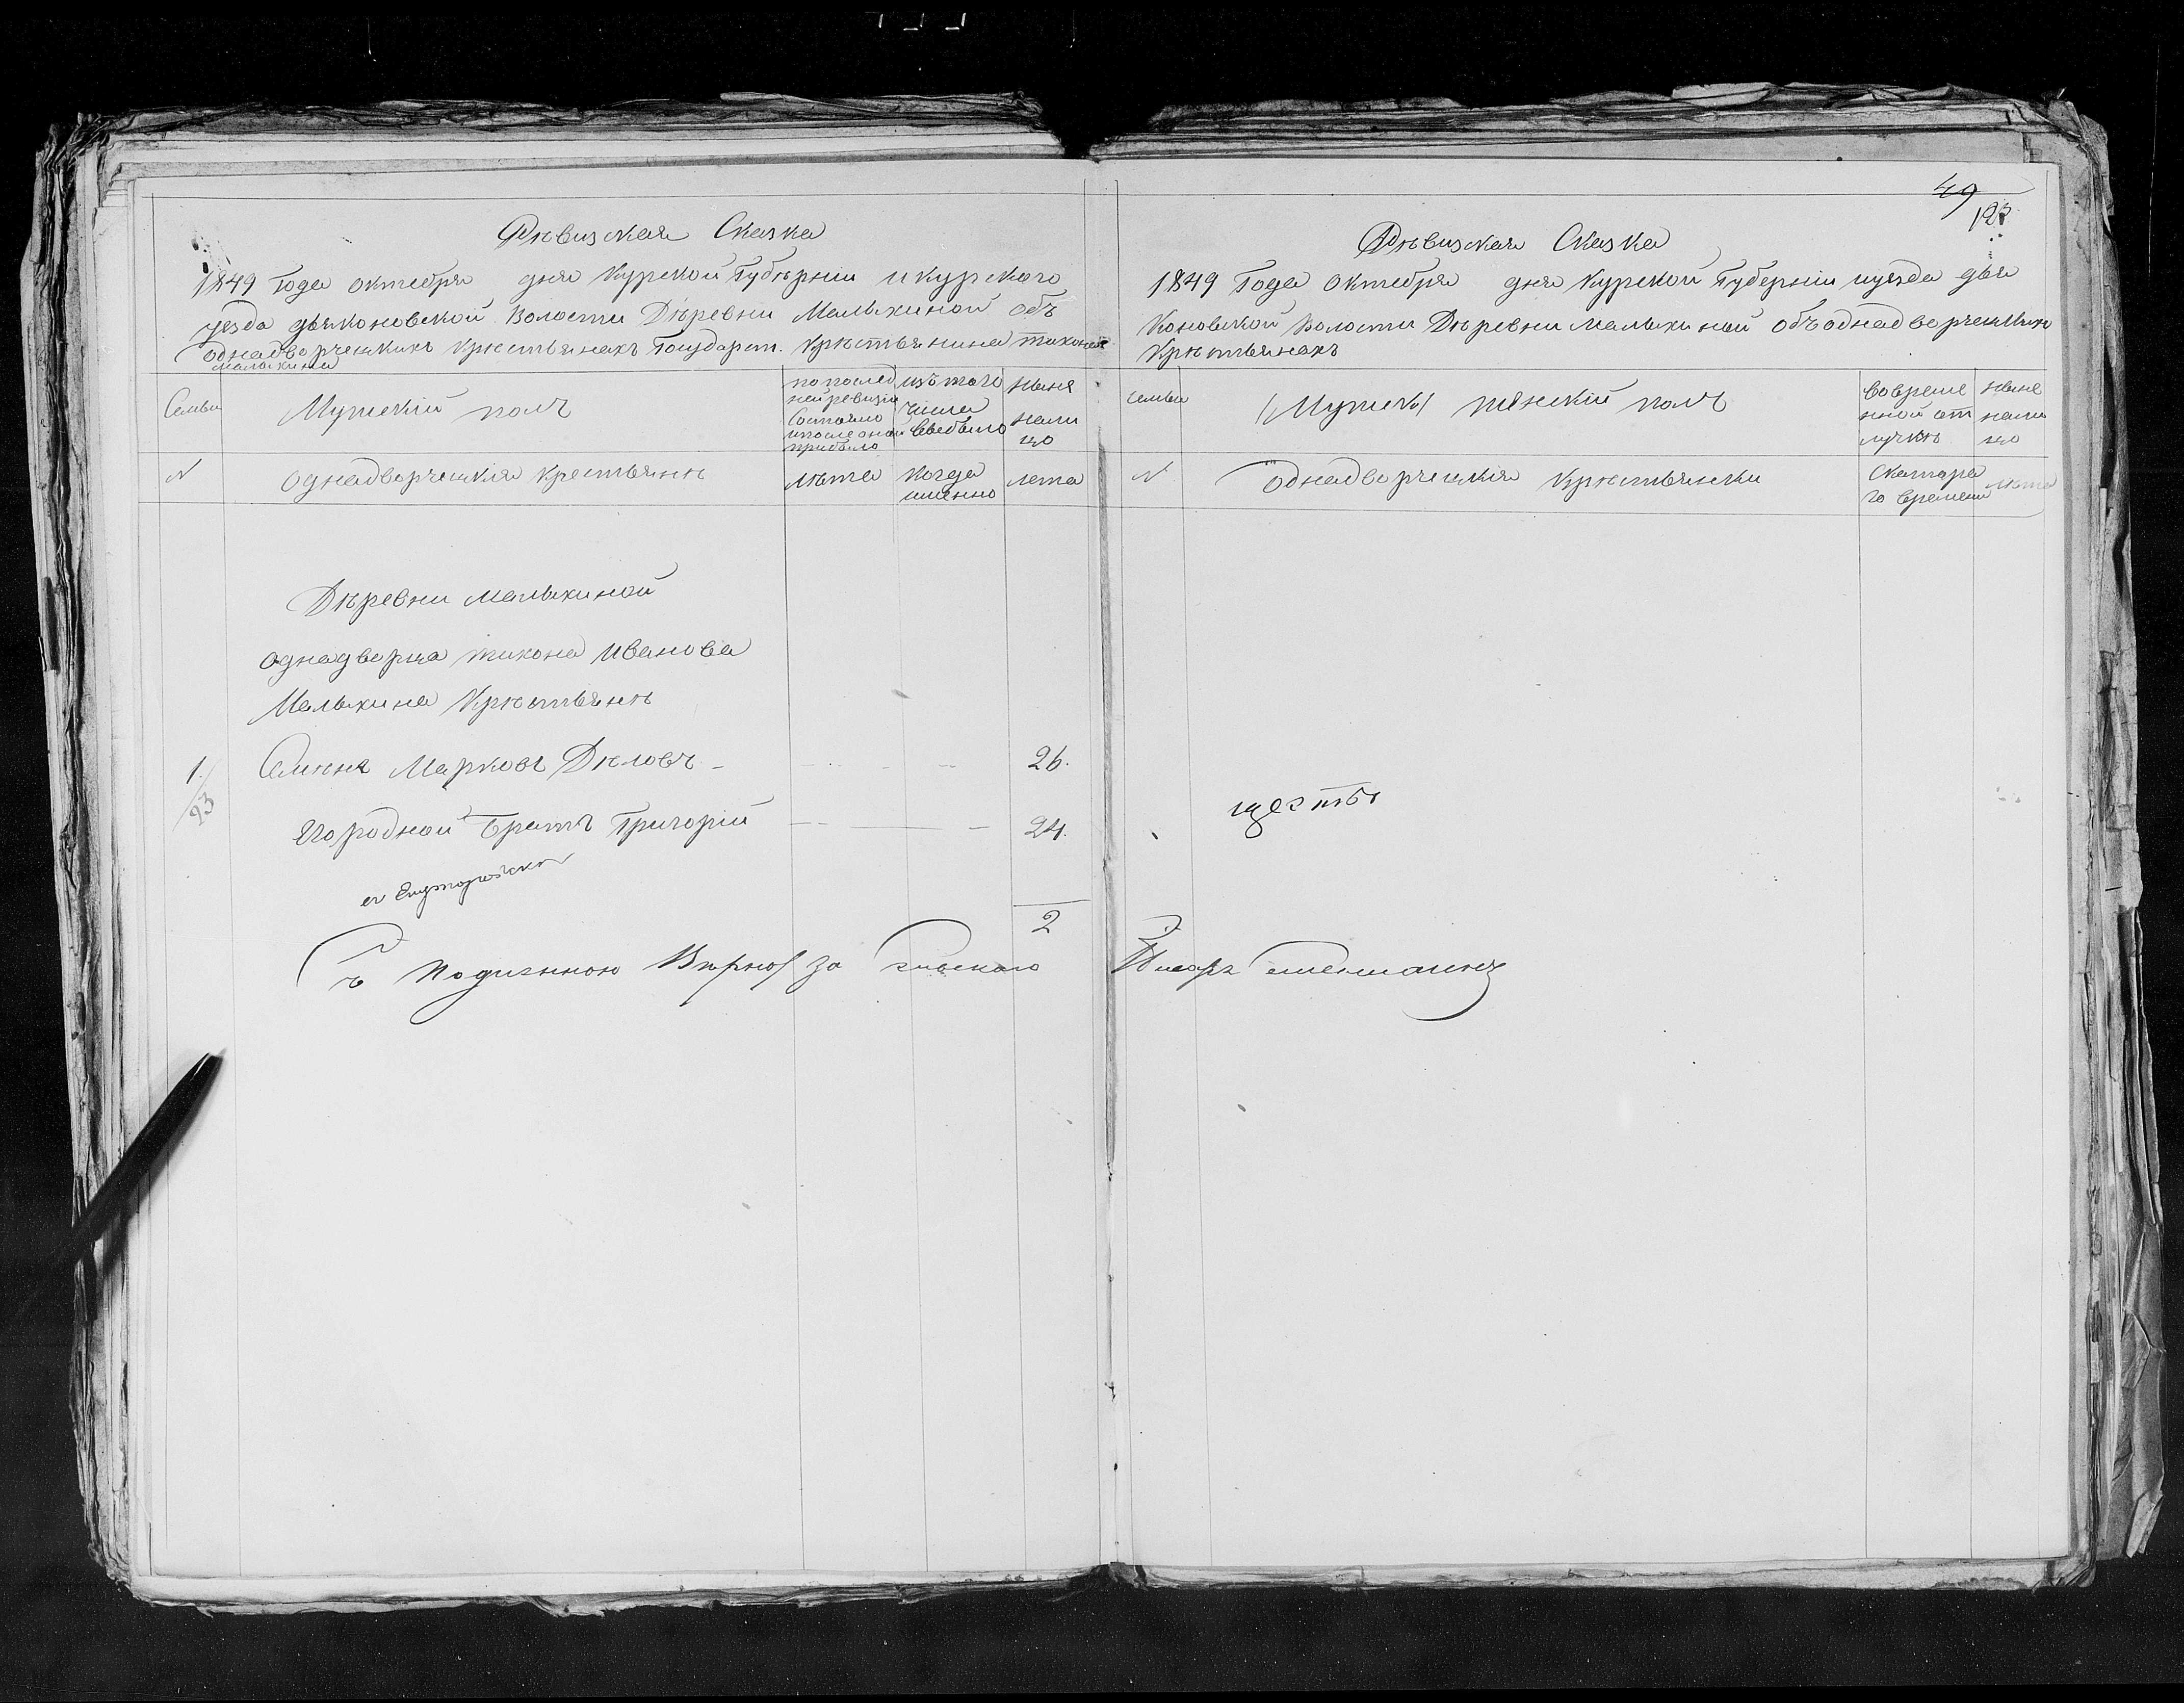 Рѣвизская Сказка
1849 Года октебря дня Курской Губѣрніи и курского
уезда дьяконовской Волости Дѣревни Малыхиной объ
однадворческихъ крѣстьянахъ Государст. крѣстьянина тихона
малыхина
Семьи
Мужескій полъ
по послед
ней ревизіи
Состояло
и после оной
прибыло
изъ того
числа
выбыло
ныне
нали
цо
N
однадворческія крестьянѣ
лѣта
когда
именно
лета
Дѣревни Малыхиной
однадворца тихона Иванова
Малыхина Крѣстьянѣ
1.
93
Семенъ Марковъ Дѣловъ
26.
Егородной братъ Григорій
24.
2
Съ подлинною Вѣрно за
49
Рѣвизская Сказка
1849 Года Октебря дня Курской Губерніи иуезда дья
Коновской Волости Дѣревни малыхиной объоднадворческихъ
Крѣстьянахъ
семьи
женскій полъ
Вовреме
нной от
лучкѣ
ныне
нали
цо
N
Однадворческія Крѣстьянки
Скаторо
го времени
лѣта
Писарь